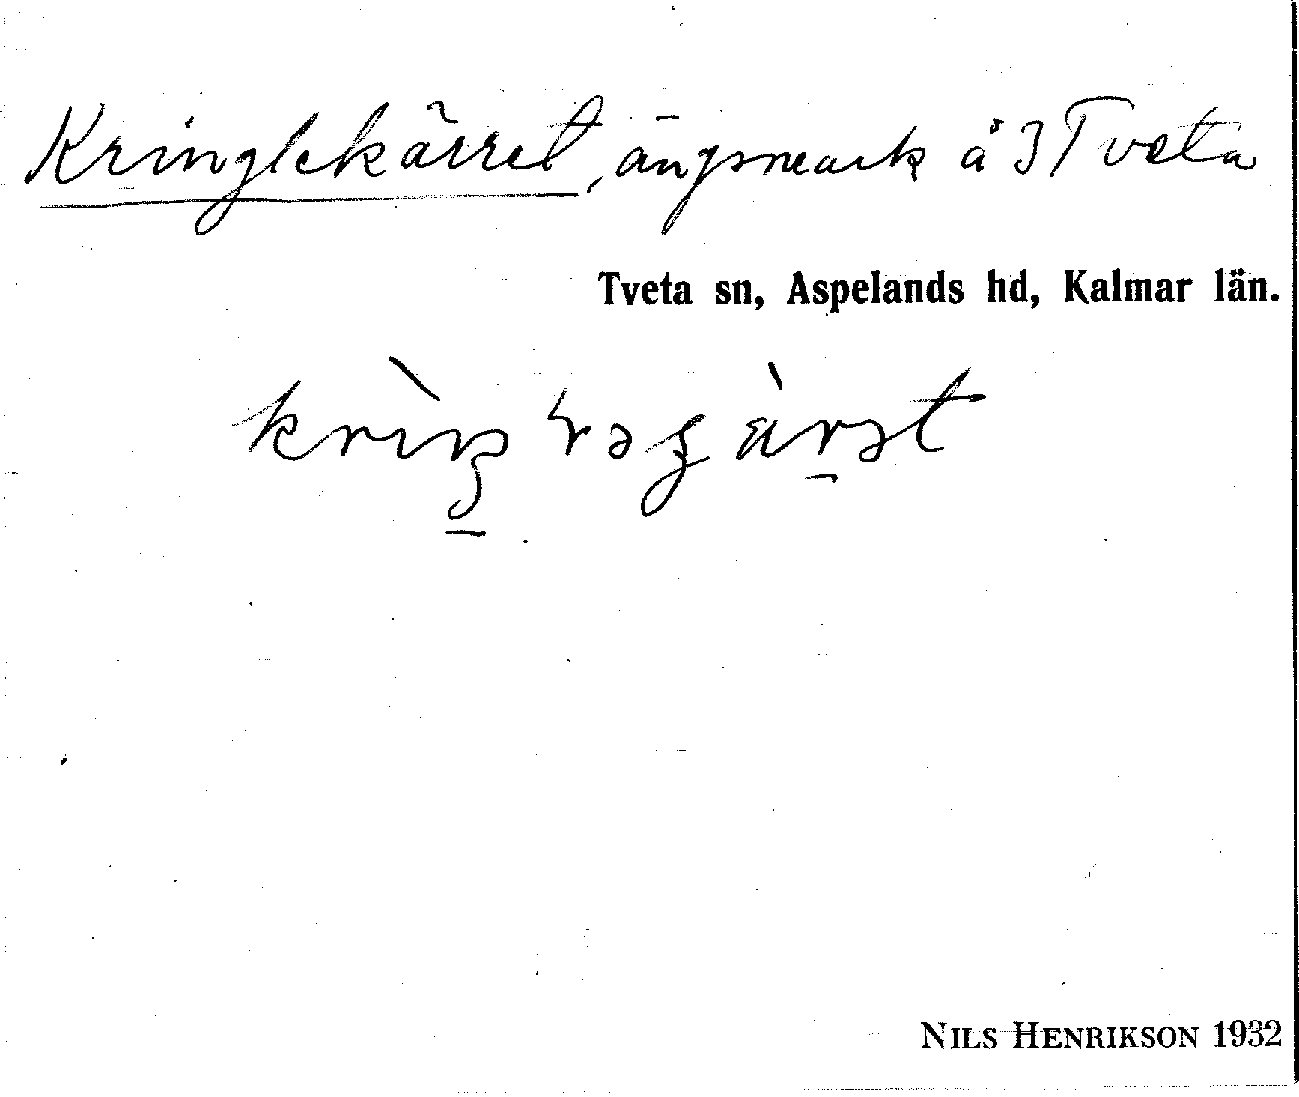 Kringlekärret, ängsmark å 3 Tveta
Tveta sn, Aspelands hd, Kalmar län.
NILS HENRIKSON 1932